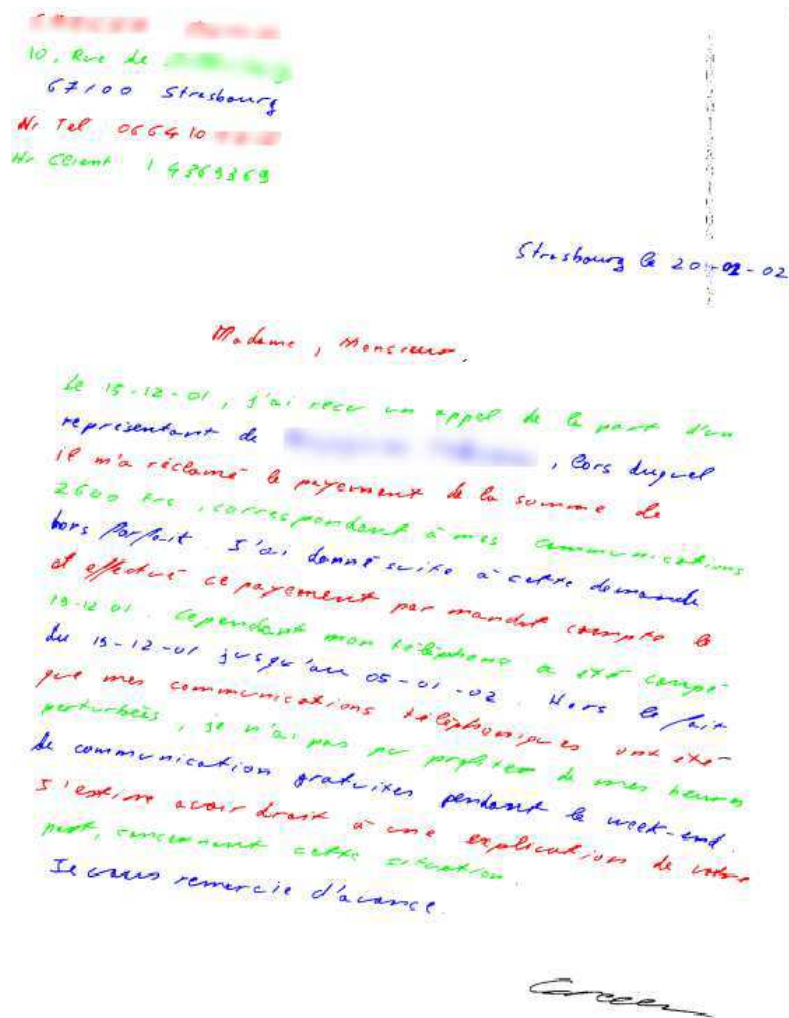 10, Rue de
67100 Strasbourg
Nr Tel 066410
Nr Client 14369369
Strasbourg le 20-02-02
Madame, Monsieur,
Le 15-12-01, j'ai recu un appel de la part d'un
représentant de , lors duquel
il m'a réclamé le payement de la somme de
2600 frs, correspondant à mes communications
hors forfait. J'ai donné suite à cette demande
et effectué ce payement par mandat compte le
19-12 01. Cependant mon téléphone a été coupé
du 19-12-01 jusqu'au 05-01-02. Hors le fait
que mes communications téléphoniques ont été
perturbées, je n'ai pas pu profiter de mes heures
de communication gratuites pendant le week-end.
J'estime avoir droit à une explication de votre
part, concernant cette situation.
Je vous remercie d'avance.